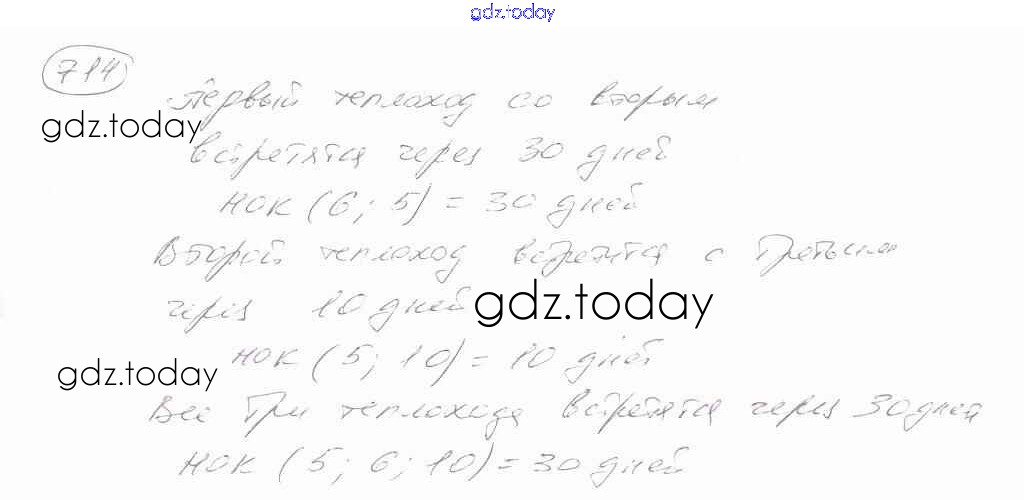 gdz.today
714
Первый теплоход со вторым
gdz.today
встретятся через 30 дней
НОК (6; 5) = 30 дней
Второй теплоход встретится с третьим
через 10 дней
gdz.today
НОК (5; 10) = 10 дней
gdz.today
Все три теплохода встретятся через 30 дней
НОК (5; 6; 10) = 30 дней